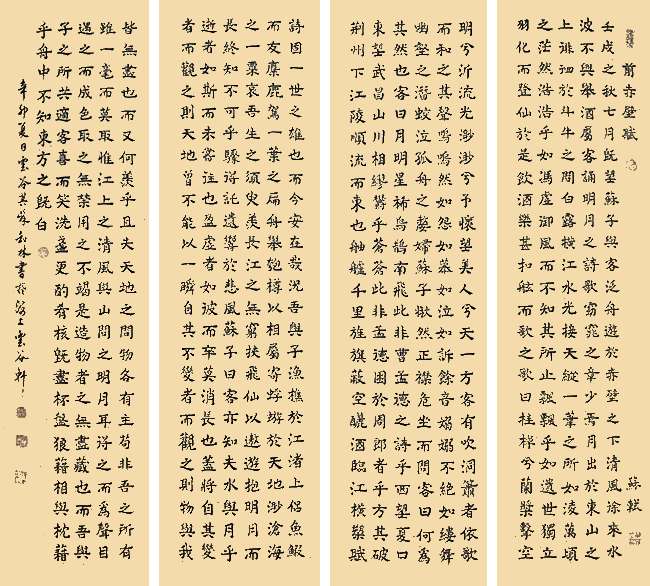 前赤壁賦 蘇軾
壬戌之秋七月既望蘇子與客泛舟遊於赤壁之下清風徐來水
波不興舉酒屬客誦明月之詩歌窈窕之章少焉月出於東山之
上徘徊於斗牛之間白露橫江水光接天縱一葦之所如凌萬頃
之茫然浩浩乎如馮虛御風而不知其所止飄飄乎如遺世獨立
羽化而登仙於是飲酒樂甚扣舷而歌之歌曰桂棹兮蘭槳擊空
明兮泝流光渺渺兮予懷望美人兮天一方客有吹洞簫者依歌
而和之其聲嗚嗚然如怨如慕如泣如訴餘音嫋嫋不絕如縷舞
幽壑之潛蛟泣孤舟之嫠婦蘇子愀然正襟危坐而問客曰何為
其然也客曰月明星稀烏鵲南飛此非曹孟德之詩乎西望夏口
東望武昌山川相繆鬱乎蒼蒼此非孟德困於周郎者乎方其破
荊州下江陵順流而東也舳艫千里旌旗蔽空釃酒臨江橫槊賦
詩固一世之雄也而今安在哉況吾與子漁樵於江渚上侶魚鰕
而友麋鹿駕一葉之扁舟舉匏樽以相屬寄蜉蝣於天地渺滄海
之一粟哀吾生之須臾羨長江之無窮挾飛仙以遨遊抱明月而
長終知不可乎驟得託遺響於悲風蘇子曰客亦知夫水與月乎
逝者如斯而未嘗往也盈虛者如彼而卒莫消長也蓋將自其變
者而觀之則天地曾不能以一瞬自其不變者而觀之則物與我
皆無盡也而又何羨乎且夫天地之間物各有主苟非吾之所有
雖一毫而莫取惟江上之清風與山間之明月耳得之而為聲目
遇之而成色取之無禁用之不竭是造物者之無盡藏也而吾與
子之所共適客喜而笑洗盞更酌肴核既盡杯盤狼藉相與枕藉
乎舟中不知東方之既白
辛卯夏日雲谷書於上雲谷軒